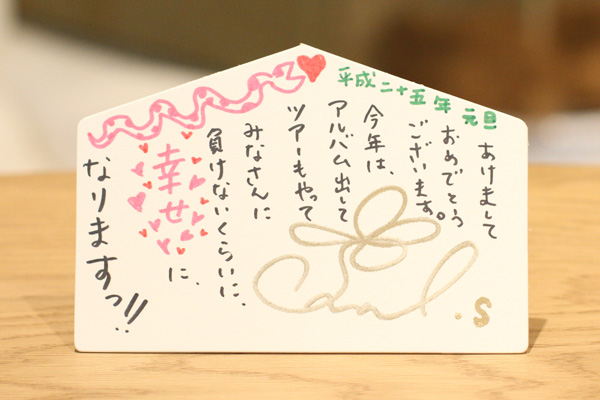 平成二十五年 元旦
あけまして
おめでとう
ございます。
今年は、
アルバム出して
ツアーもやって
みなさんに
負けないくらいに、
幸せに、
なりますっ!!
.S